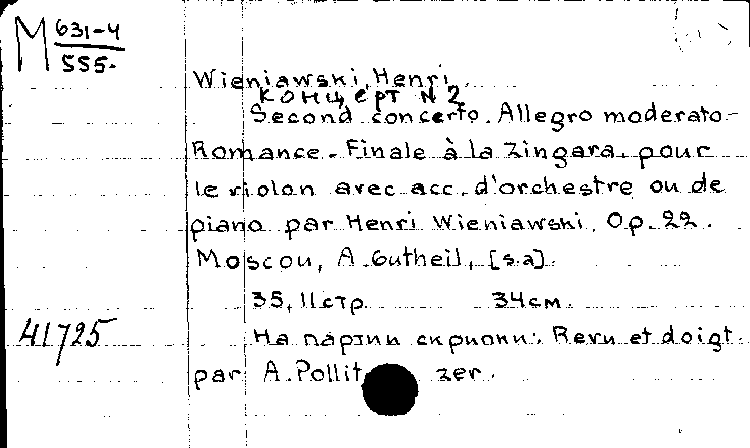 M 631-4
555.
Wieniawski, Henri.
Концерт N 2
Second concerto. Allegro moderato-
Romance. Finale à la Zingara, pour
le violon avec acc. d'orchestre ou de
piano par Henri Wieniawski. Op. 22.
Moscou, A. Gutheil, [s.a].
35, 11 стр. 34 см.
41725
На партии скрипки: Revu et doigt.
par A. Pollit zer.